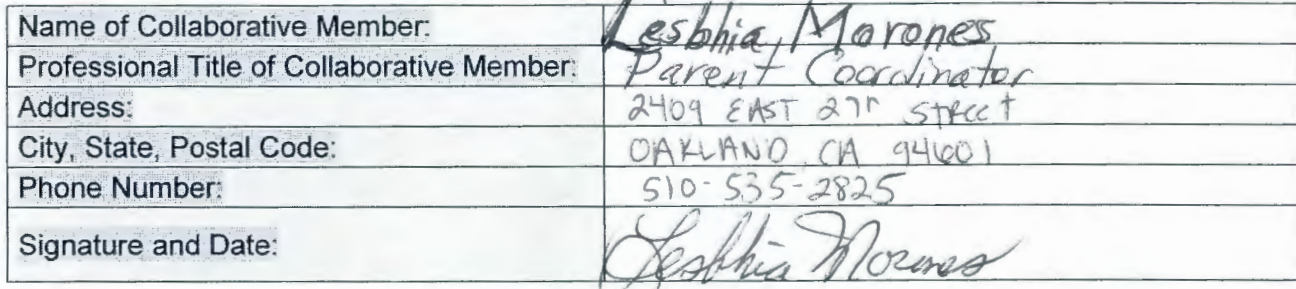 Name of Collaborative Member: Lesbhia, Morones
Professional Title of Collaborative Member: Parent Coordinator
Address: 2409 EAST 27th Street
City, State, Postal Code: OAKLAND, CA 94601
Phone Number: 510-535-2825
Signature and Date: Lesbhia Morones